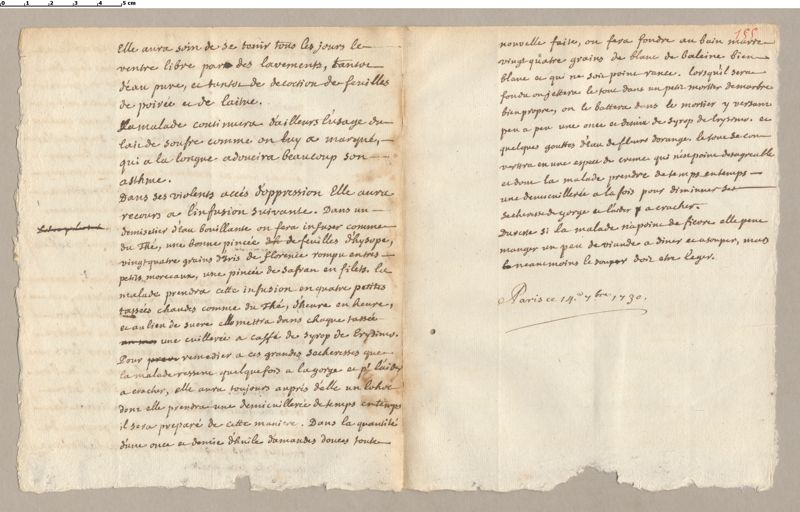 Elle aura soin de se tenir tous les jours le
ventre libre par des lavements, tantost
d'eau pure, et tantost de decoction de feuilles
de poirée et de laitue.
La malade continuera d'ailleurs l'usage du
lait de soufre comme on luy a marqué,
qui a la longue adoucira beaucoup son
asthme.
Dans ses violents accès d'oppression Elle aura
recours a l'infusion suivante. Dans un
demisetier d'eau bouillante on fera infuser comme
du Thé, une bonne pincée de feuilles d'hysope,
vingt quatre grains d'iris de florence rompu en tres
petits morceaux, une pincée de safran en filets. La
malade prendra cette infusion en quatre petites
tassées chaudes comme du Thé, d'heure en heure,
et au lieu de sucre elle mettra dans chaque tassée
une cuillerée a caffé de syrop de Erysimum.
Pour remedier a ces grandes secheresses que
la malade ressent quelquefois a la gorge et pr l'aider
a cracher, elle aura toujours auprès d'elle un lohoc
dont elle prendra une demicuillerée de temps en temps
il sera preparé de cette maniere. Dans la quantité
d'une once et demie d'huile d'amandes douces toute
155
nouvelle faite, on fera fondre au bain marie
vingt quatre grains de blanc de baleine bien
blanc et qui ne soit point rance. lorsqu'il sera
fondu on jettera le tout dans un petit mortier de marbre
bien propre, on le battera dans le mortier y versant
peu a peu une once et demie de syrop de Erysimum. et
quelques gouttes d'eau de fleurs d'orange. le tout se con-
vertira en une espece de creme qui n'est point desagreable
et dont la malade prendra de temps en temps
une demicuillerée a la fois pour diminuer ses
secheresse de gorge et l'aider a cracher.
Du reste si la malade n'a point de fievre elle peut
manger un peu de viande a diner et a souper, mais
neantmoins le souper doit etre leger.
Paris ce 14.e 7bre 1730.